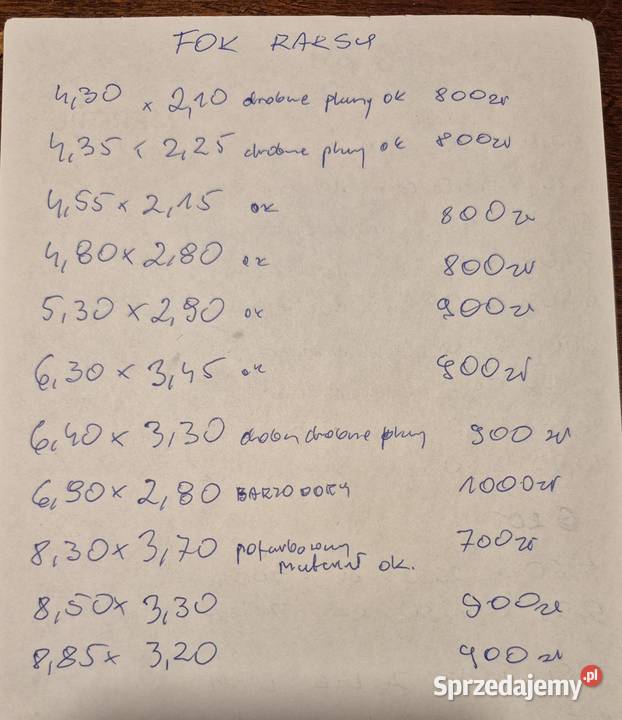 FOK RAKSY
4,30 x 2,10 drobne plamy ok 800zł
4,35 x 2,25 drobne plamy ok 800zł
4,55 x 2,15 ok 800zł
4,80 x 2,80 ok 800zł
5,30 x 2,90 ok 900zł
6,30 x 3,45 ok 900zł
6,40 x 3,30 drobne plamy 900 zł
6,90 x 2,80 BARZO DOBRY 1000zł
8,30 x 3,70 pofarbowany 700zł
materiał ok.
8,50 x 3,30 900zł
8,85 x 3,20 900 zł
Sprzedajemy.pl